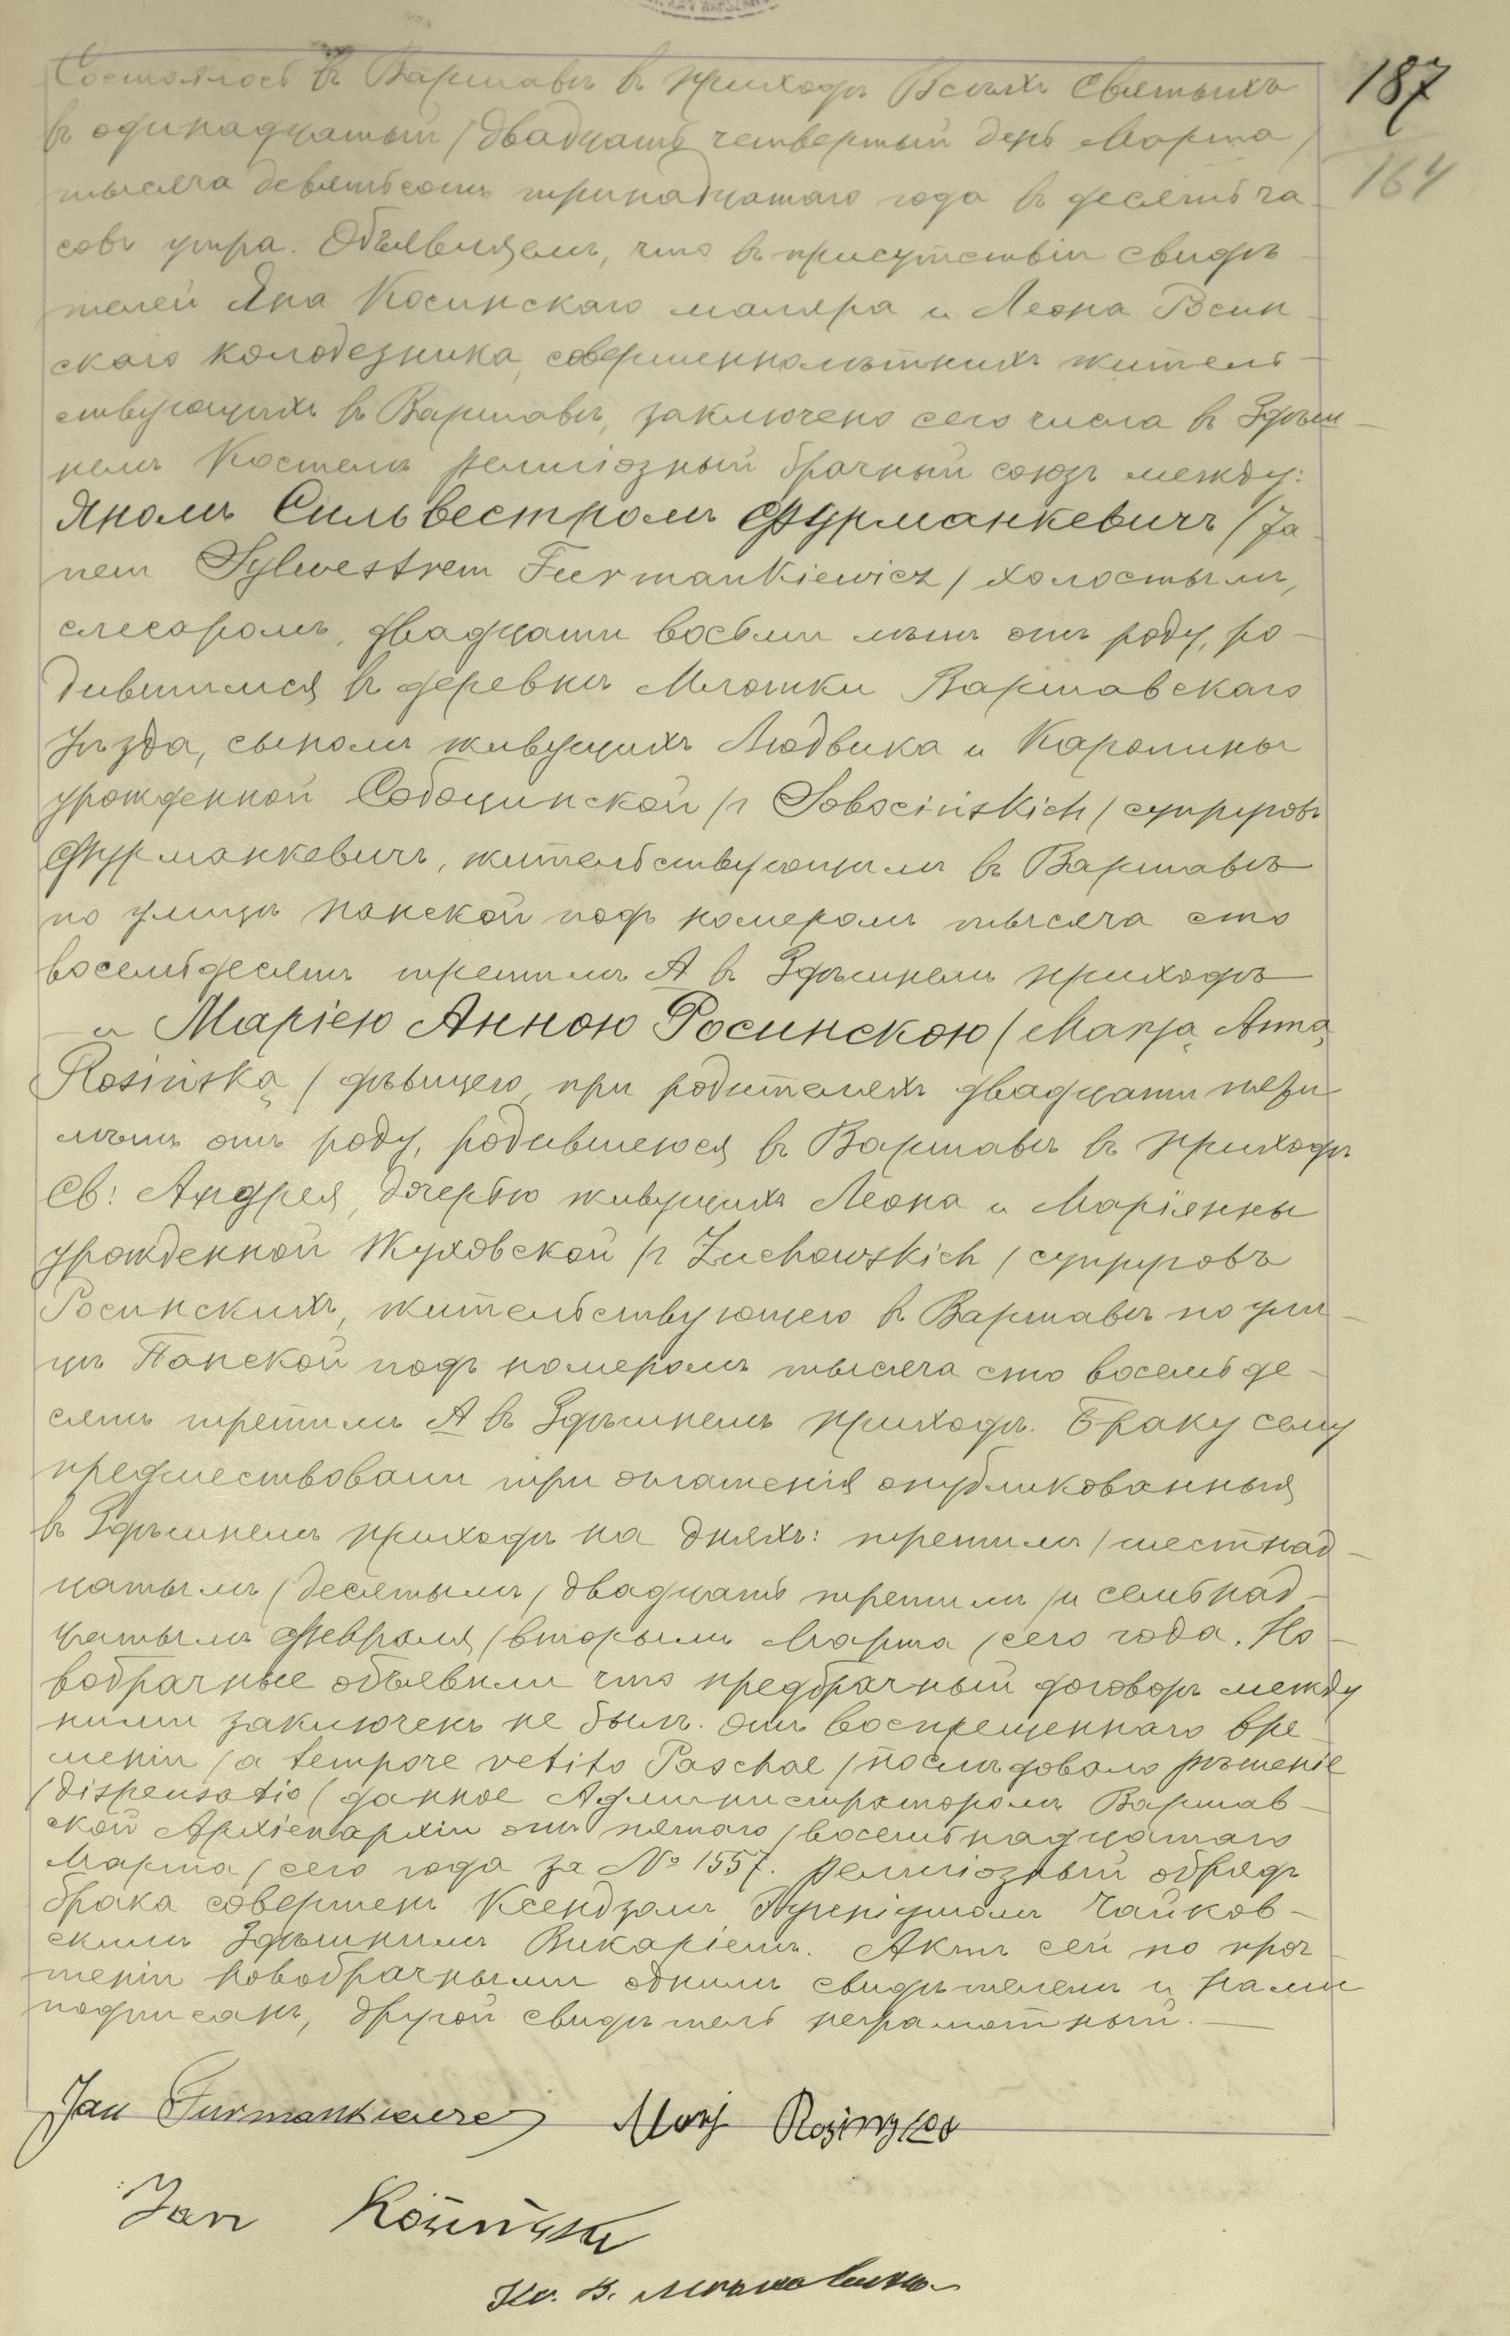 187
164
Состоялось въ Варшавѣ въ приходѣ Всѣхъ Святыхъ
въ одинадцатый / двадцать четвертый день Марта /
тысяча девятьсотъ тринадцатаго года въ десять ча-
совъ утра. Объявляемъ, что въ присутствіи свидѣ-
телей Яна Косинскаго маляра и Леона Росин-
скаго колодезника, совершеннолѣтнихъ житель-
ствующихъ въ Варшавѣ, заключено сего числа въ Здѣш-
немъ Костелѣ религіозный брачный союзъ между:
Яномъ Сильвестромъ Фурманкевичъ / Ja-
nem Sylwestrem Furmankiewicz / холостымъ,
слесаромъ, двадцати восьми лѣтъ отъ роду, ро-
дившимся въ деревнѣ Млотки Варшавскаго
уѣзда, сыномъ живущихъ Людвика и Каролины
урожденной Собоцинской / z Sobocińskich / супруговъ
Фурманкевичъ, жительствующимъ въ Варшавѣ
по улицѣ Панской подъ номеромъ тысяча сто
восемьдесятъ третимъ А въ Здѣшнемъ приходѣ
— и Маріею Анною Росинскою / Marją Anną
Rosińską / дѣвицею при родителяхъ двадцати трехъ
лѣтъ отъ роду, родившеюся въ Варшавѣ въ приходѣ
Св: Андрея, дочерью живущихъ Леона и Маріянны
урожденной Жуховской / z Żuchowskich / супруговъ
Росинскихъ, жительствующею въ Варшавѣ по ули-
цѣ Панской подъ номеромъ тысяча сто восемьде-
сятъ третимъ А въ Здѣшнемъ приходѣ. Браку сему
предшествовали три оглашенія опубликованныя
въ Здѣшнемъ приходѣ на дняхъ: третимъ / шестнад-
цатымъ / десятымъ / двадцать третимъ / и семьнад-
цатымъ Февраля / вторымъ Марта / сего года. Но-
вобрачные объявили что предбрачный договоръ между
ними заключенъ не былъ. Отъ воспрещеннаго вре-
мени / a tempore vetito Paschae / послѣдовало рѣшеніе
/ dispensatio / данное Администраторомъ Варшав-
ской Архіепархіи отъ пятаго / восемьнадцатаго
Марта / сего года за № 1557. Религіозный обрядъ
брака совершенъ Ксендзомъ Чайков-
скимъ Здѣшнимъ Викаріемъ. Актъ сей по проч-
теніи новобрачными однимъ свидѣтелемъ и Нами
подписанъ, другой свидѣтель неграмотный. —
Jan Furmankiewicz Marj Rozinzka
Jan Kosiński
Кс. В.